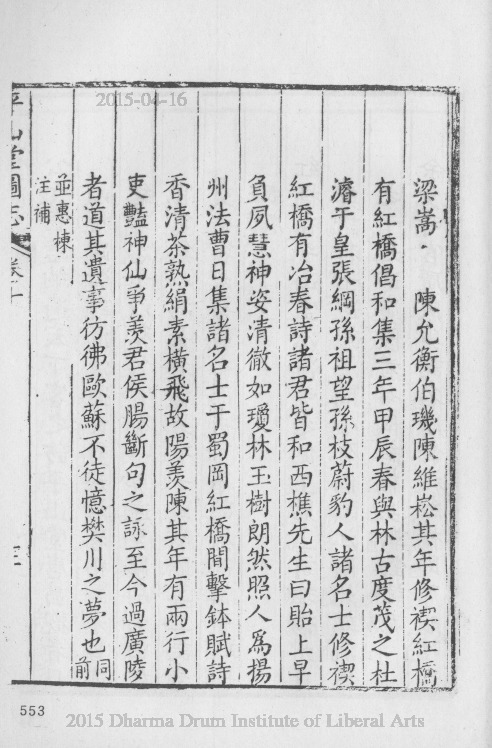 2015-04-16
梁嵩　陳允衡伯璣陳維崧其年修禊紅橋
有紅橋倡和集三年甲辰春與林古度茂之杜
濬于皇張綱孫祖望孫枝蔚豹人諸名士修禊
紅橋有冶春詩諸君皆和西樵先生曰貽上早
負夙慧神姿清徹如瓊林玉樹朗然照人爲揚
州法曹日集諸名士于蜀岡紅橋間擊鉢賦詩
香清茶熟絹素橫飛故陽羨陳其年有兩行小
吏豔神仙爭羨君侯腸斷句之詠至今過廣陵
者道其遺事彷彿歐蘇不徒憶樊川之夢也同前
並惠棟
注補
平山堂圖志 卷十
553
2015 Dharma Drum Institute of Liberal Arts